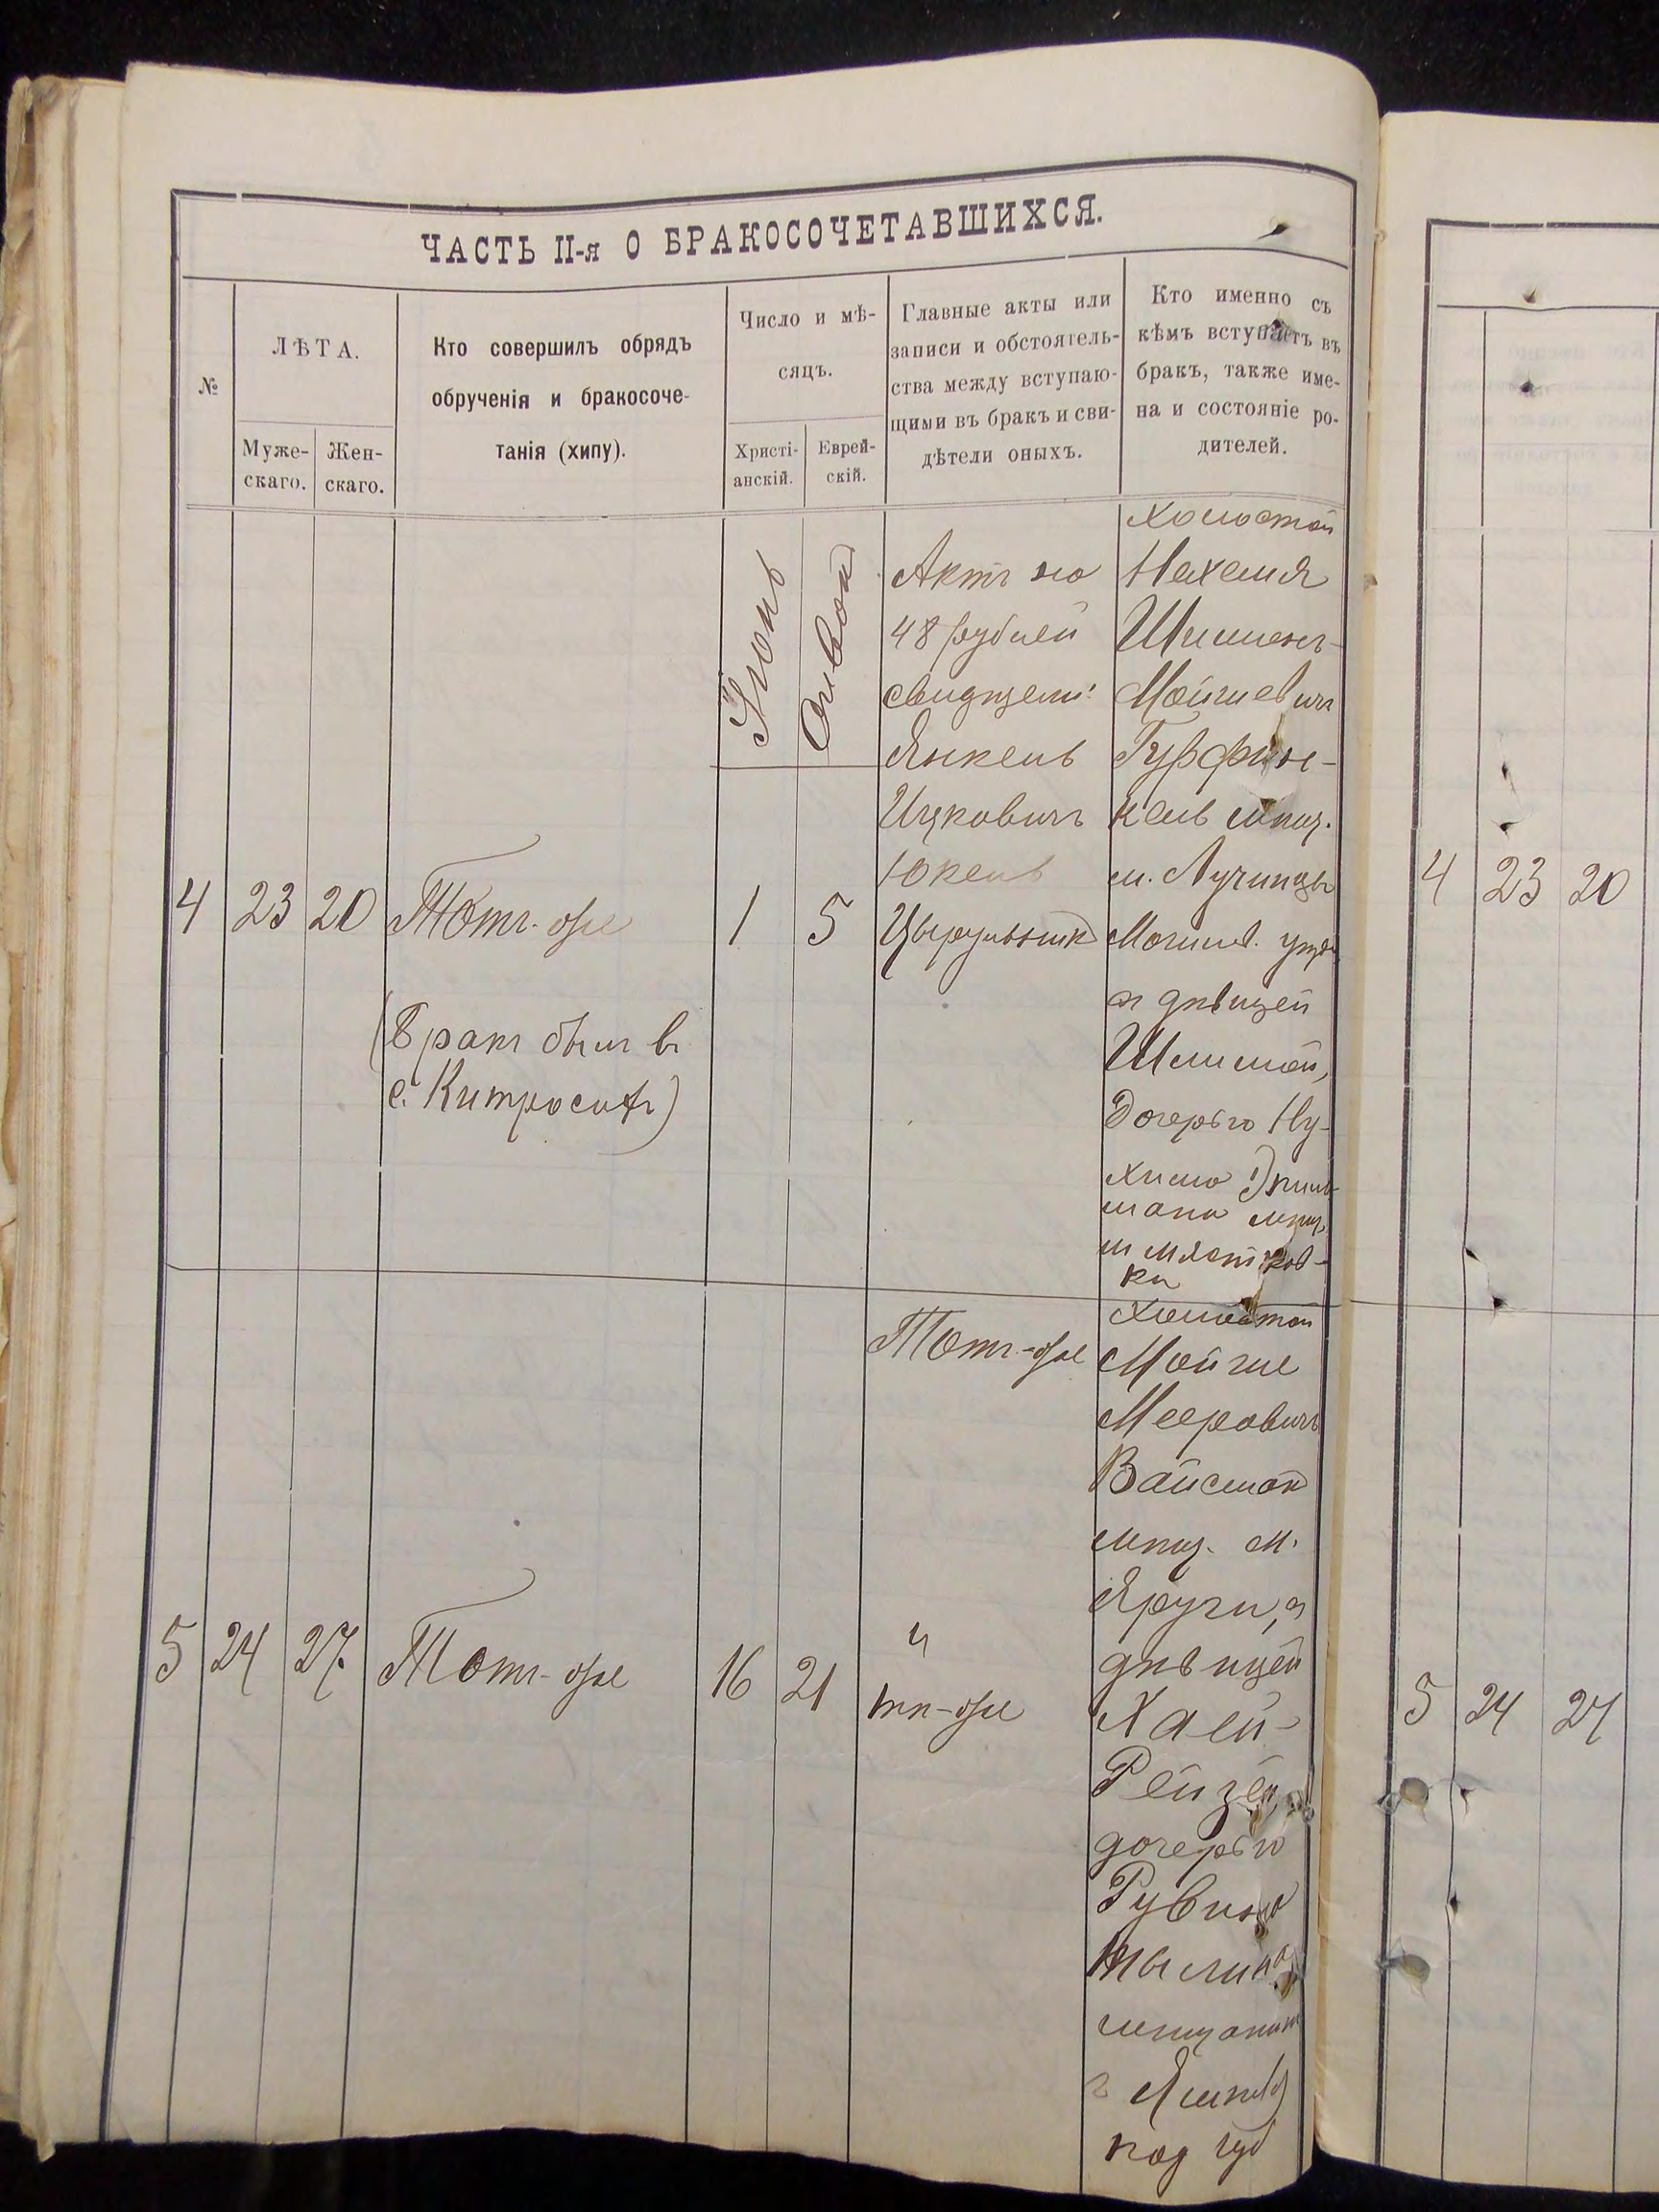 ЧАСТЬ II-я О БРАКОСОЧЕТАВШИХСЯ.
№
ЛѢТА.
Муже-
скаго.
Жен-
скаго.
Кто совершилъ обрядъ
обрученія и бракосоче-
танія (хипу).
Число и мѣ-
сяцъ.
Христі-
анскій.
Еврей-
скій.
Главные акты или
записи и обстоятель-
ства между вступаю-
щими въ бракъ и сви-
дѣтели оныхъ.
Кто именно съ
кѣмъ вступаетъ въ
бракъ, также име-
на и состояніе ро-
дителей.
4
23
20
Тотъ-же
(Бракъ былъ въ
с. Китросахъ)
Іюнь
1
5
Актъ на
48 рублей
свидѣтели:
Янкель
Ицковичъ
Юкель
Цырульник
Холостой
Нехемія
Шимонъ-
Мойшевичъ
Гурфин-
кель мѣщ.
м. Лучинцы
Могилев. уѣзда
съ дѣвицей
Шлимой,
Дочерью Ну-
хима
мана мѣщ.
м Мястков-
ки
5
24
27
Тотъ-же
16
21
Тотъ-же
и
тѣ-же
Холостой
Мойше
Мееровичъ
Вайсман
мѣщ. м.
Яруги, съ
дѣвицей
Хаей-
Рейзей,
дочерью
Рувина
мѣщанина
г
под губ
4
23
20
5
24
27